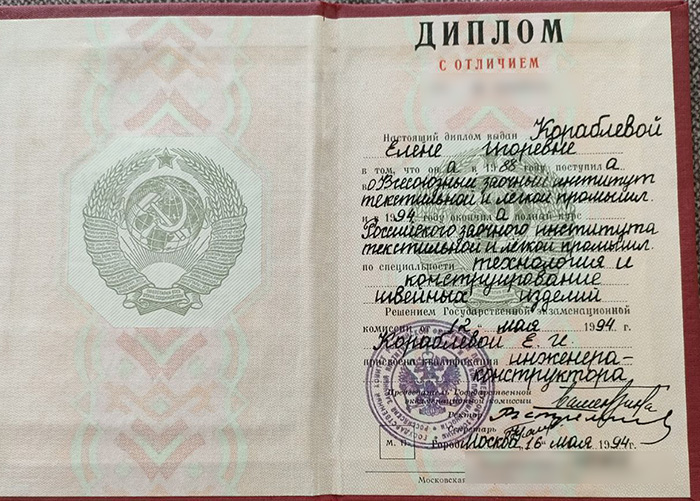 ДИПЛОМ
С ОТЛИЧИЕМ
Настоящий диплом выдан Кораблевой
Елене Игоревне
в том, что она в 1988 году поступила
во Всесоюзный заочный институт
текстильной и легкой промышл.
и в 1994 году окончила полный курс
Российского заочного института
текстильной и легкой промышл.
по специальности технология и
конструирование
швейных изделий
Решением Государственной экзаменационной
комиссии от 12 мая 1994 г.
Кораблевой Е. И.
присвоена квалификация инженера-
конструктора
Председатель Государственной
экзаменационной комиссии
Ректор
Секретарь
М. П. Город Москва, 16 мая 1994 г.
Московская